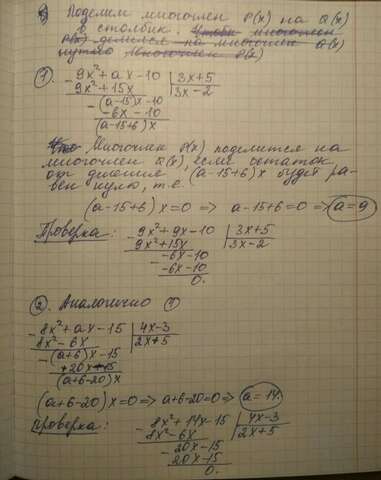 Поделим многочлен P(x) на Q(x)
в столбик. Чтобы многочлен
P(x) делился на многочлен Q(x)
нужно многочлен P(x)
1.
- 9x² + ax - 10 | 3x + 5
9x² + 15x | 3x - 2
- (a-15)x - 10
-6x - 10
(a-15+6)x
Что Многочлен P(x) поделится на
многочлен Q(x), если остаток
от деления (a-15+6)x будет ра-
вен нулю, т.е.
(a-15+6)x=0 => a-15+6=0 => a=9
Проверка: - 9x²+9x-10 | 3x+5
9x²+15x | 3x-2
- -6x-10
-6x-10
0.
2. Аналогично 1
- 8x²+ax-15 | 4x-3
8x²-6x | 2x+5
- (a+6)x-15
+20x-15
(a+6-20)x
(a+6-20)x=0 => a+6-20=0 => a=14.
проверка: - 8x²+14x-15 | 4x-3
8x²-6x | 2x+5
- 20x-15
20x-15
0.